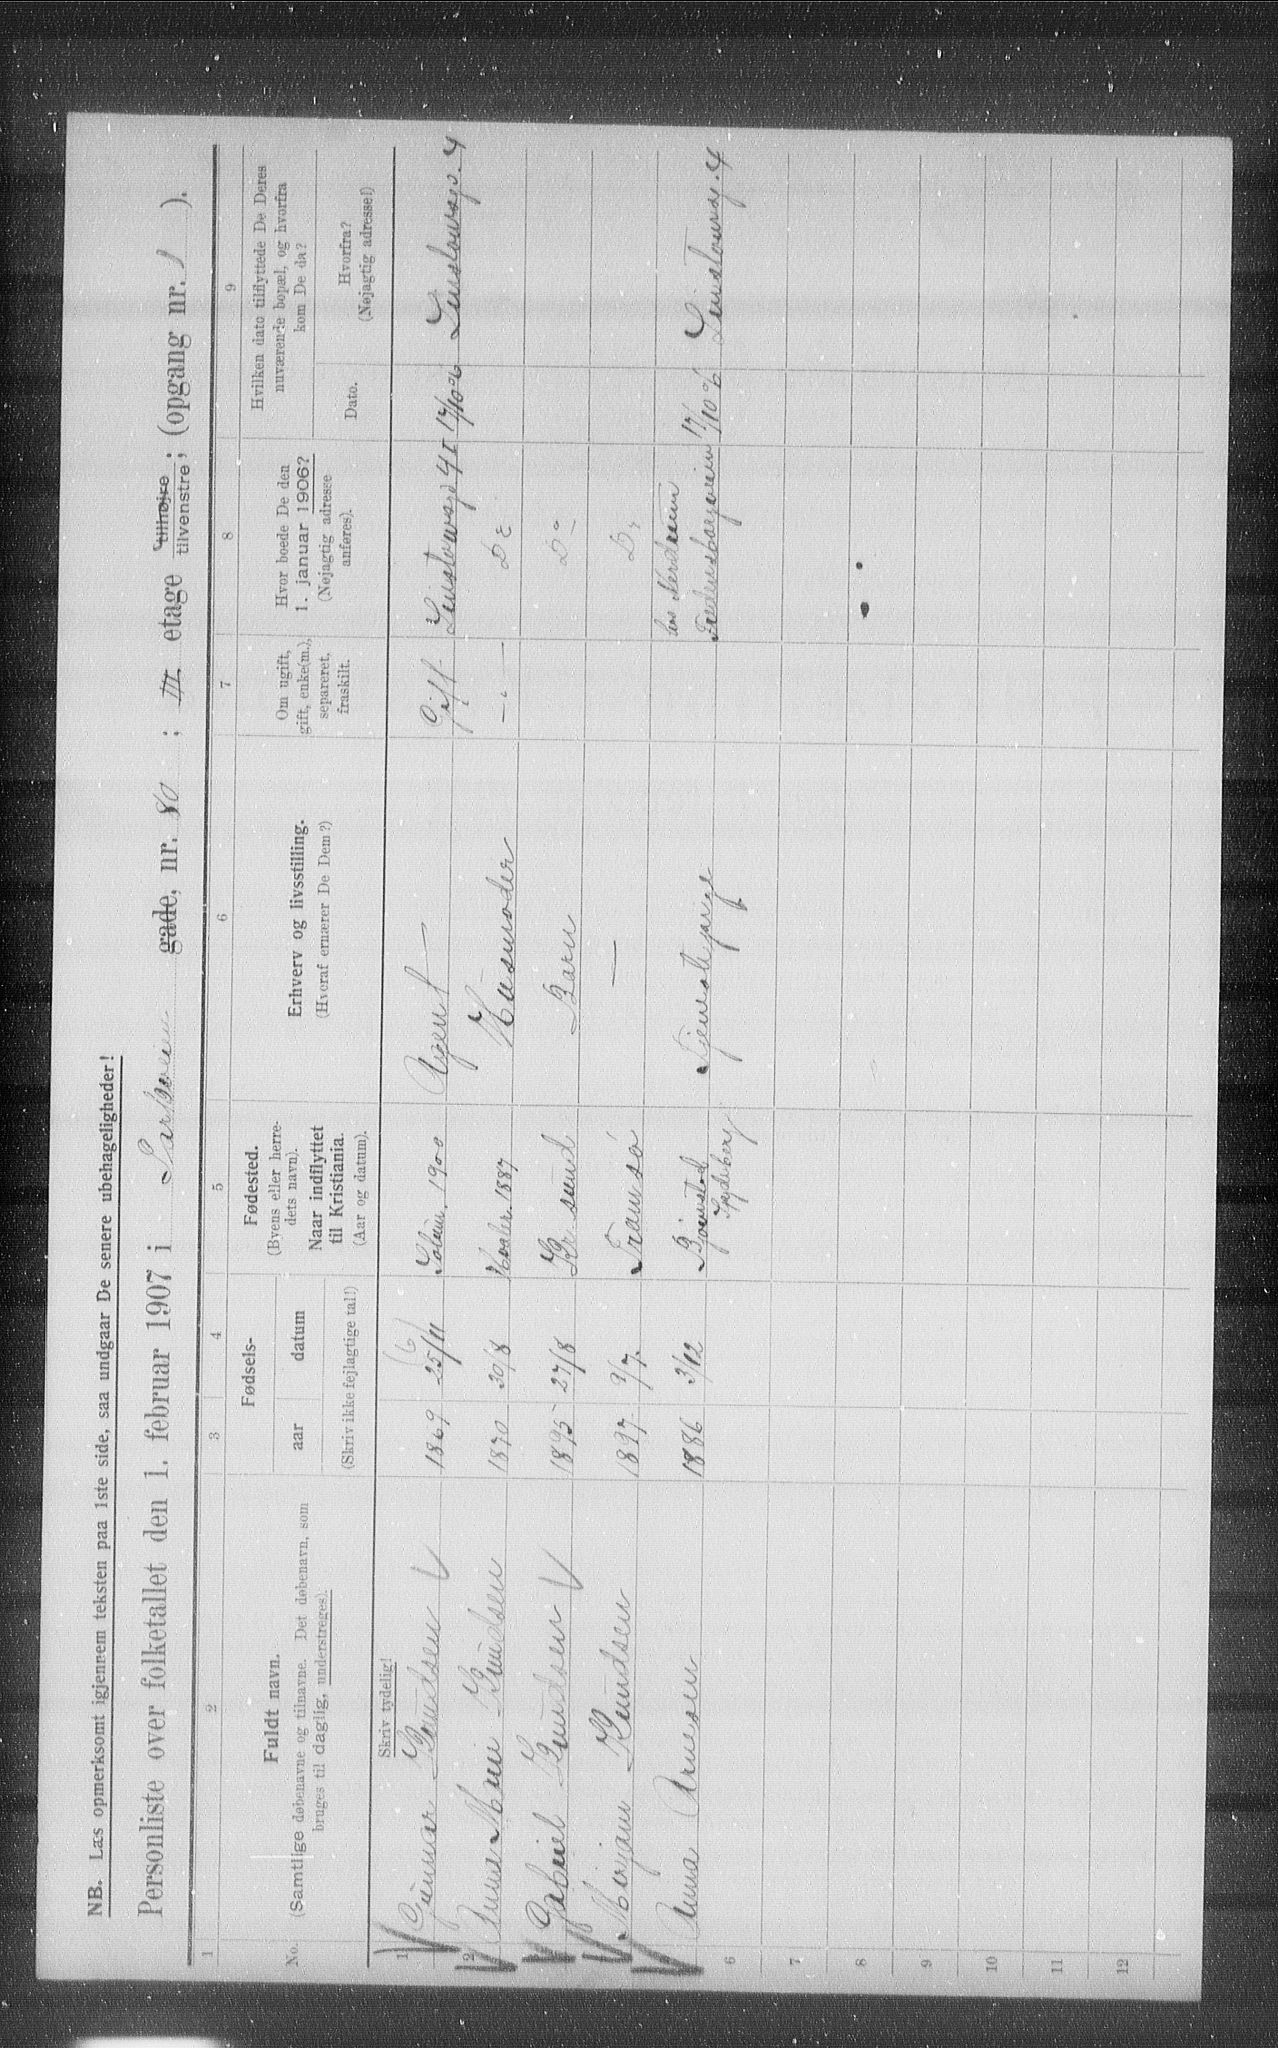 NB. Læs opmerksomt igjennem teksten paa 1ste side, saa undgaar De senere ubehageligheder!
Personliste over folketallet den 1. februar 1907 i gade, nr. 80 ; III etage tilhøjre tilvenstre; (opgang nr. 1 ).
1 2 3 4 5 6 7 8 9
No.
Fuldt navn.
(Samtlige døbenavne og tilnavne. Det døbenavn, som
bruges til daglig, understreges).
Fødsels-
aar datum
(Skriv ikke fejlagtige tal!)
Fødested.
(Byens eller herre-
dets navn).
Naar indflyttet
til Kristiania.
(Aar og datum).
Erhverv og livsstilling.
(Hvoraf ernærer De Dem?)
Om ugift,
gift, enke(m.),
separeret,
fraskilt.
Hvor boede De den
1. januar 1906?
(Nøjagtig adresse
anføres).
Hvilken dato tilflyttede De Deres
nuværende bopæl, og hvorfra
kom De da?
Dato.
Hvorfra?
(Nøjagtig adresse!)
Skriv tydelig!
1 Gunnar Knudsen 1869 25/11 Solum, 1900 Agent Gift Linstowsgd 4 I 17/10 06 Linstowsgd. 4
2 Anna Marie Knudsen 1870 30/8 Hvaler. 1887 Husmoder — " — Do
3 Gabriel Knudsen 1895 27/8 Kr sund Barn Do
Mirjam Knudsen 1897 9/7. Tromsø — Do
Anna Arnesen 1886 3/12 Spydeberg Tjenestepige hos 17/10 06 Linstowsg. 4
6
7
8
9
10
11
12